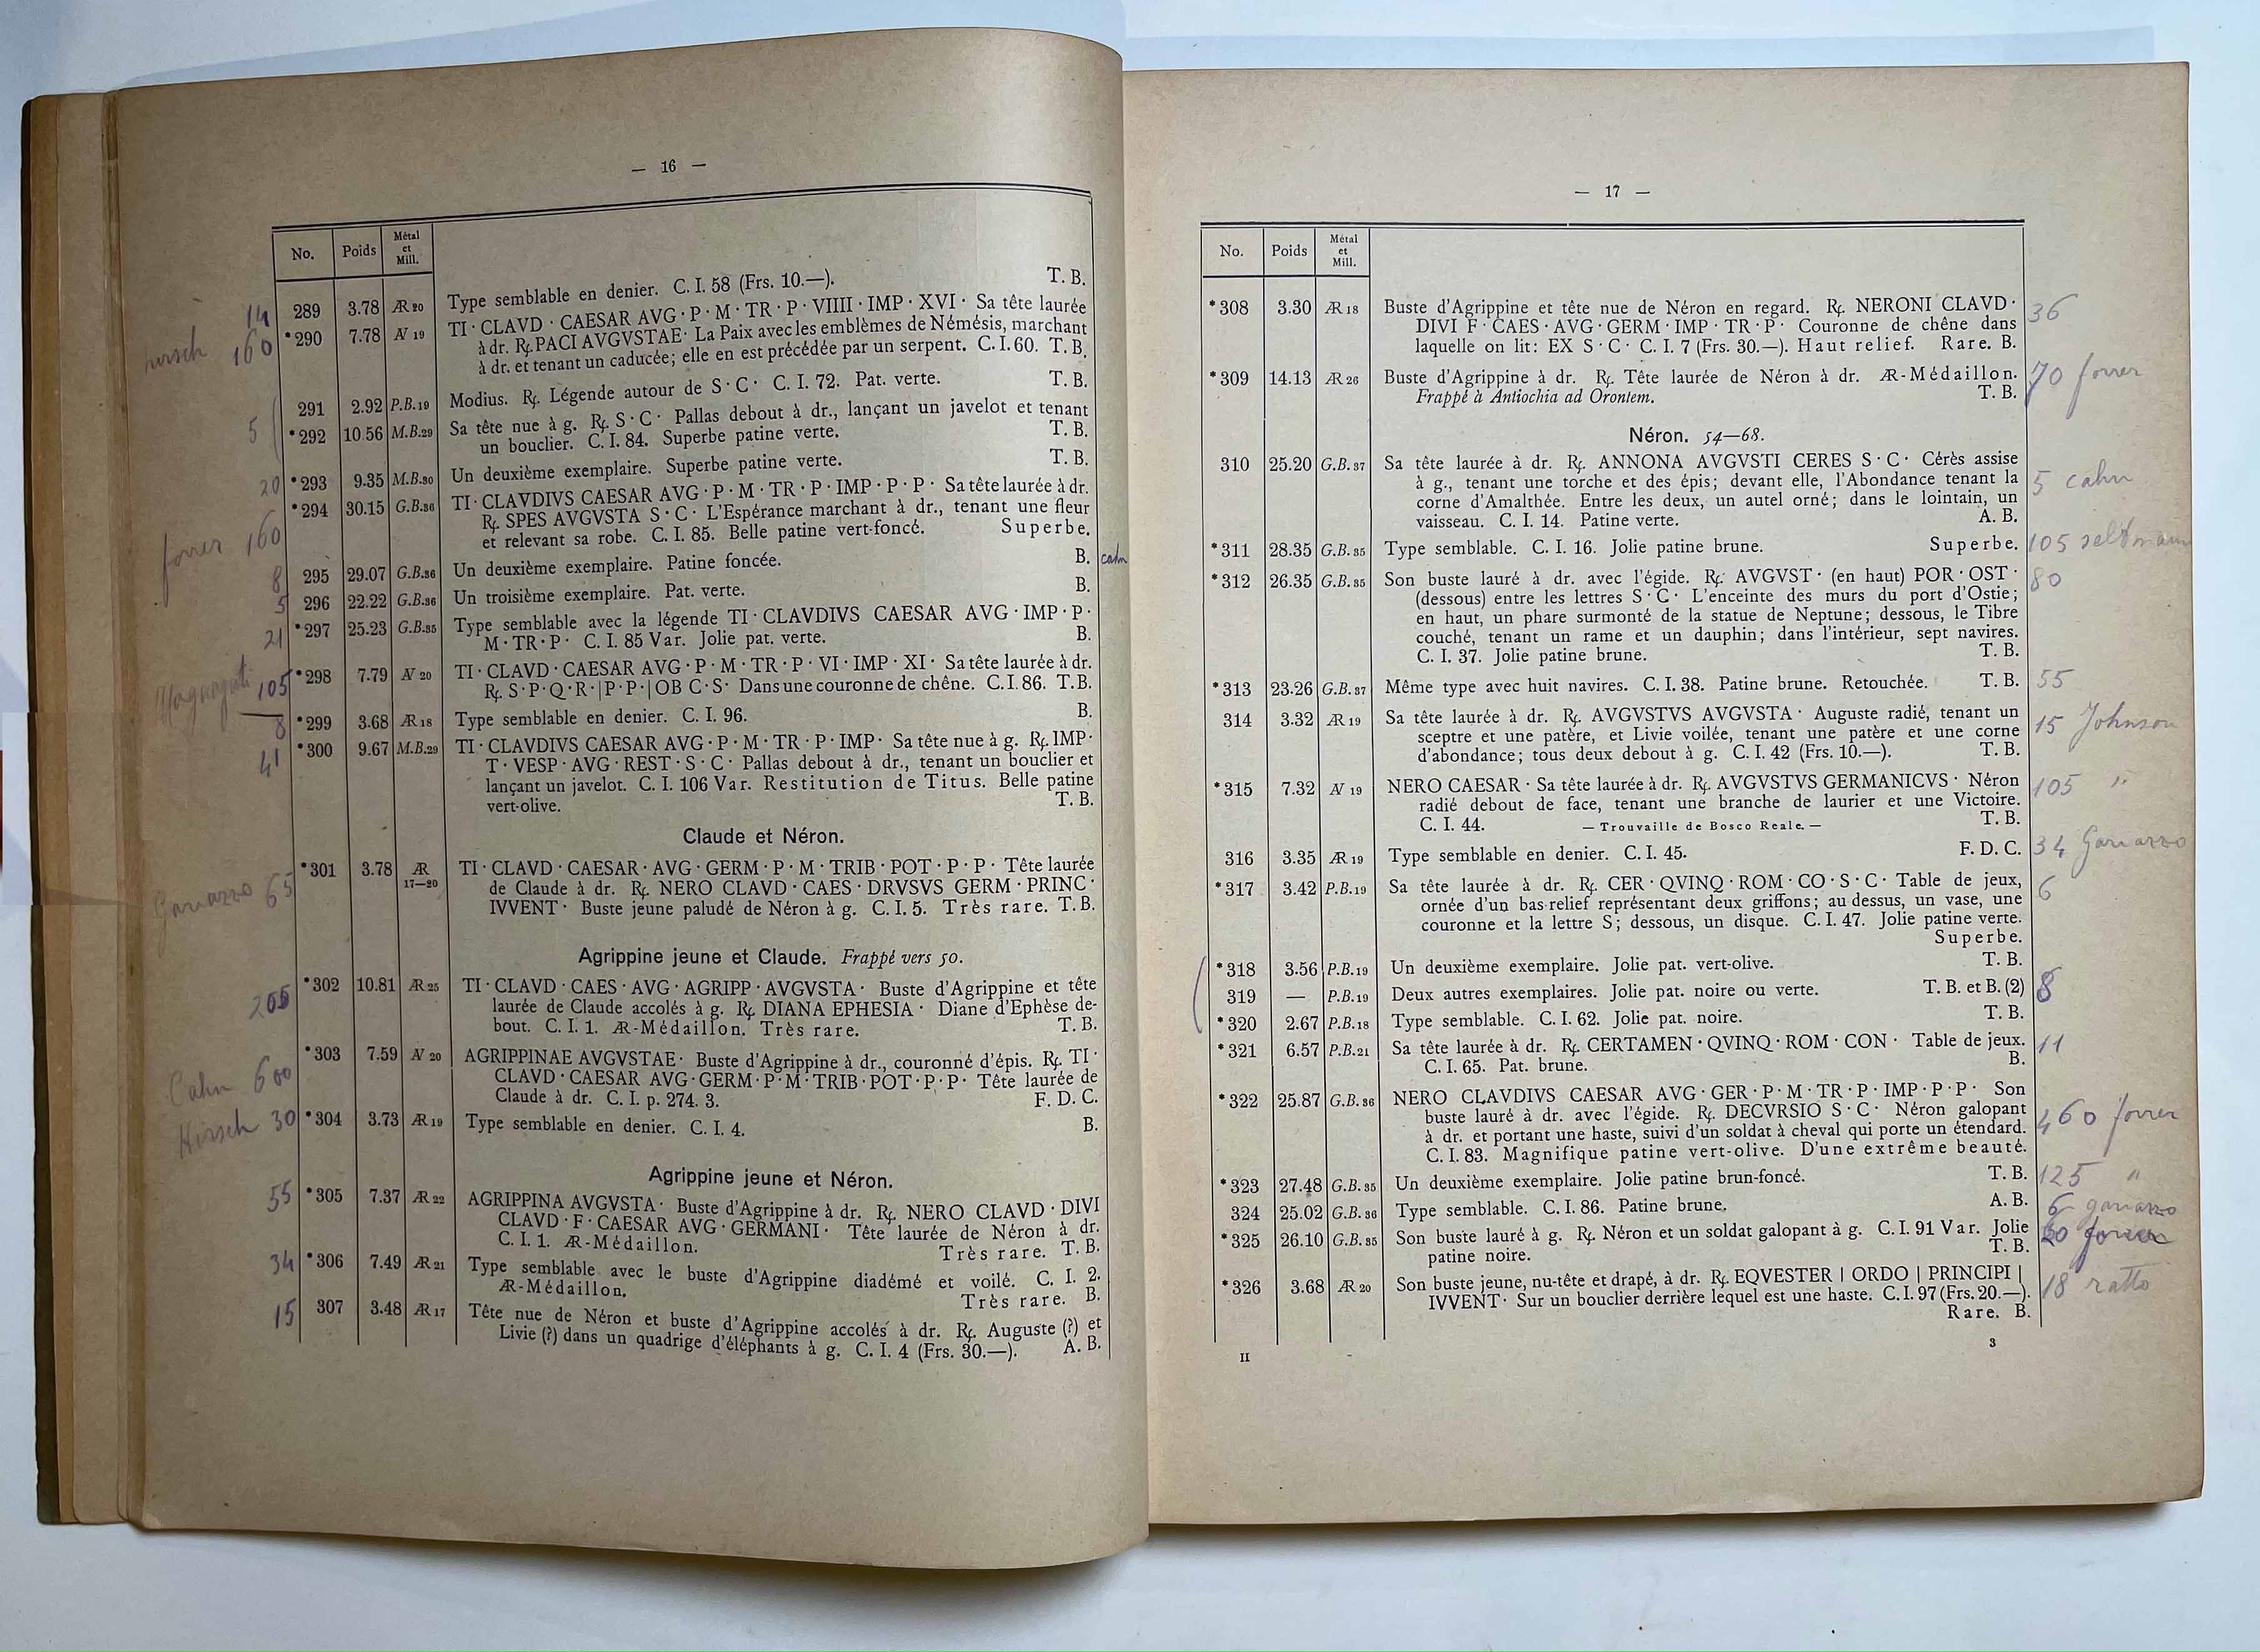 — 16 —
No. Poids Métal et Mill.
14 289 3.78 ÆR 20 Type semblable en denier. C. I. 58 (Frs. 10.—). T. B.
hirsch 160 *290 7.78 AV 19 TI · CLAVD · CAESAR AVG · P · M · TR · P · VIIII · IMP · XVI · Sa tête laurée
à dr. R̸. PACI AVGVSTAE · La Paix avec les emblèmes de Némésis, marchant
à dr. et tenant un caducée; elle en est précédée par un serpent. C. I. 60. T. B.
291 2.92 P.B.19 Modius. R̸. Légende autour de S · C · C. I. 72. Pat. verte. T. B.
5 *292 10.56 M.B.29 Sa tête nue à g. R̸. S · C · Pallas debout à dr., lançant un javelot et tenant
un bouclier. C. I. 84. Superbe patine verte. T. B.
20 *293 9.35 M.B.30 Un deuxième exemplaire. Superbe patine verte. T. B.
forrer 160 *294 30.15 G.B.36 TI · CLAVDIVS CAESAR AVG · P · M · TR · P · IMP · P · P · Sa tête laurée à dr.
R̸. SPES AVGVSTA S · C · L'Espérance marchant à dr., tenant une fleur
et relevant sa robe. C. I. 85. Belle patine vert-foncé. Superbe.
8 295 29.07 G.B.36 Un deuxième exemplaire. Patine foncée. B. cahn
5 296 22.22 G.B.36 Un troisième exemplaire. Pat. verte. B.
21 *297 25.23 G.B.35 Type semblable avec la légende TI · CLAVDIVS CAESAR AVG · IMP · P ·
M · TR · P · C. I. 85 Var. Jolie pat. verte. B.
105 *298 7.79 AV 20 TI · CLAVD · CAESAR AVG · P · M · TR · P · VI · IMP · XI · Sa tête laurée à dr.
R̸. S · P · Q · R · | P · P · | OB C · S · Dans une couronne de chêne. C. I. 86. T. B.
8 *299 3.68 ÆR 18 Type semblable en denier. C. I. 96. B.
41 *300 9.67 M.B.29 TI · CLAVDIVS CAESAR AVG · P · M · TR · P · IMP · Sa tête nue à g. R̸. IMP ·
T · VESP · AVG · REST · S · C · Pallas debout à dr., tenant un bouclier et
lançant un javelot. C. I. 106 Var. Restitution de Titus. Belle patine
vert-olive. T. B.
Claude et Néron.
Garrazzo 65 *301 3.78 ÆR 17—20 TI · CLAVD · CAESAR · AVG · GERM · P · M · TRIB · POT · P · P · Tête laurée
de Claude à dr. R̸. NERO CLAVD · CAES · DRVSVS GERM · PRINC ·
IVVENT · Buste jeune paludé de Néron à g. C. I. 5. Très rare. T. B.
Agrippine jeune et Claude. Frappé vers 50.
*302 10.81 ÆR 25 TI · CLAVD · CAES · AVG · AGRIPP · AVGVSTA · Buste d'Agrippine et tête
laurée de Claude accolés à g. R̸. DIANA EPHESIA · Diane d'Ephèse de-
bout. C. I. 1. ÆR-Médaillon. Très rare. T. B.
Cahn 600 *303 7.59 AV 20 AGRIPPINAE AVGVSTAE · Buste d'Agrippine à dr., couronné d'épis. R̸. TI ·
CLAVD · CAESAR AVG · GERM · P · M · TRIB · POT · P · P · Tête laurée de
Claude à dr. C. I. p. 274. 3. F. D. C.
Hirsch 30 *304 3.73 ÆR 19 Type semblable en denier. C. I. 4. B.
Agrippine jeune et Néron.
55 *305 7.37 ÆR 22 AGRIPPINA AVGVSTA · Buste d'Agrippine à dr. R̸. NERO CLAVD · DIVI
CLAVD · F · CAESAR AVG · GERMANI · Tête laurée de Néron à dr.
C. I. 1. ÆR-Médaillon. Très rare. T. B.
34 *306 7.49 ÆR 21 Type semblable avec le buste d'Agrippine diadémé et voilé. C. I. 2.
ÆR-Médaillon. Très rare. B.
15 307 3.48 ÆR 17 Tête nue de Néron et buste d'Agrippine accolés à dr. R̸. Auguste (?) et
Livie (?) dans un quadrige d'éléphants à g. C. I. 4 (Frs. 30.—). A. B.
— 17 —
No. Poids Métal et Mill.
*308 3.30 ÆR 18 Buste d'Agrippine et tête nue de Néron en regard. R̸. NERONI CLAVD · 36
DIVI F · CAES · AVG · GERM · IMP · TR · P · Couronne de chêne dans
laquelle on lit: EX S · C · C. I. 7 (Frs. 30.—). Haut relief. Rare. B.
*309 14.13 ÆR 26 Buste d'Agrippine à dr. R̸. Tête laurée de Néron à dr. ÆR-Médaillon. 70 forrer
Frappé à Antiochia ad Orontem. T. B.
Néron. 54—68.
310 25.20 G.B.37 Sa tête laurée à dr. R̸. ANNONA AVGVSTI CERES S · C · Cérès assise
à g., tenant une torche et des épis; devant elle, l'Abondance tenant la 5 cahn
corne d'Amalthée. Entre les deux, un autel orné; dans le lointain, un
vaisseau. C. I. 14. Patine verte. A. B.
*311 28.35 G.B.35 Type semblable. C. I. 16. Jolie patine brune. Superbe. 105 seltmann
*312 26.35 G.B.35 Son buste lauré à dr. avec l'égide. R̸. AVGVST · (en haut) POR · OST · 80
(dessous) entre les lettres S · C · L'enceinte des murs du port d'Ostie;
en haut, un phare surmonté de la statue de Neptune; dessous, le Tibre
couché, tenant un rame et un dauphin; dans l'intérieur, sept navires.
C. I. 37. Jolie patine brune. T. B.
*313 23.26 G.B.37 Même type avec huit navires. C. I. 38. Patine brune. Retouchée. T. B. 55
314 3.32 ÆR 19 Sa tête laurée à dr. R̸. AVGVSTVS AVGVSTA · Auguste radié, tenant un 15 Johnson
sceptre et une patère, et Livie voilée, tenant une patère et une corne
d'abondance; tous deux debout à g. C. I. 42 (Frs. 10.—). T. B.
*315 7.32 AV 19 NERO CAESAR · Sa tête laurée à dr. R̸. AVGVSTVS GERMANICVS · Néron 105 "
radié debout de face, tenant une branche de laurier et une Victoire.
C. I. 44. — Trouvaille de Bosco Reale. — T. B.
316 3.35 ÆR 19 Type semblable en denier. C. I. 45. F. D. C. 34 Garrazzo
*317 3.42 P.B.19 Sa tête laurée à dr. R̸. CER · QVINQ · ROM · CO · S · C · Table de jeux, 6
ornée d'un bas-relief représentant deux griffons; au dessus, un vase, une
couronne et la lettre S; dessous, un disque. C. I. 47. Jolie patine verte.
Superbe.
*318 3.56 P.B.19 Un deuxième exemplaire. Jolie pat. vert-olive. T. B.
319 — P.B.19 Deux autres exemplaires. Jolie pat. noire ou verte. T. B. et B. (2) 8
*320 2.67 P.B.18 Type semblable. C. I. 62. Jolie pat. noire. T. B.
*321 6.57 P.B.21 Sa tête laurée à dr. R̸. CERTAMEN · QVINQ · ROM · CON · Table de jeux. 11
C. I. 65. Pat. brune. B.
*322 25.87 G.B.36 NERO CLAVDIVS CAESAR AVG · GER · P · M · TR · P · IMP · P · P · Son
buste lauré à dr. avec l'égide. R̸. DECVRSIO S · C · Néron galopant 460 forrer
à dr. et portant une haste, suivi d'un soldat à cheval qui porte un étendard.
C. I. 83. Magnifique patine vert-olive. D'une extrême beauté.
*323 27.48 G.B.35 Un deuxième exemplaire. Jolie patine brun-foncé. T. B. 125 "
324 25.02 G.B.36 Type semblable. C. I. 86. Patine brune. A. B. 6 garrazzo
*325 26.10 G.B.35 Son buste lauré à g. R̸. Néron et un soldat galopant à g. C. I. 91 Var. Jolie forrer
patine noire. T. B.
*326 3.68 ÆR 20 Son buste jeune, nu-tête et drapé, à dr. R̸. EQVESTER | ORDO | PRINCIPI | 18 ratto
IVVENT · Sur un bouclier derrière lequel est une haste. C. I. 97 (Frs. 20.—).
Rare. B.
II 3